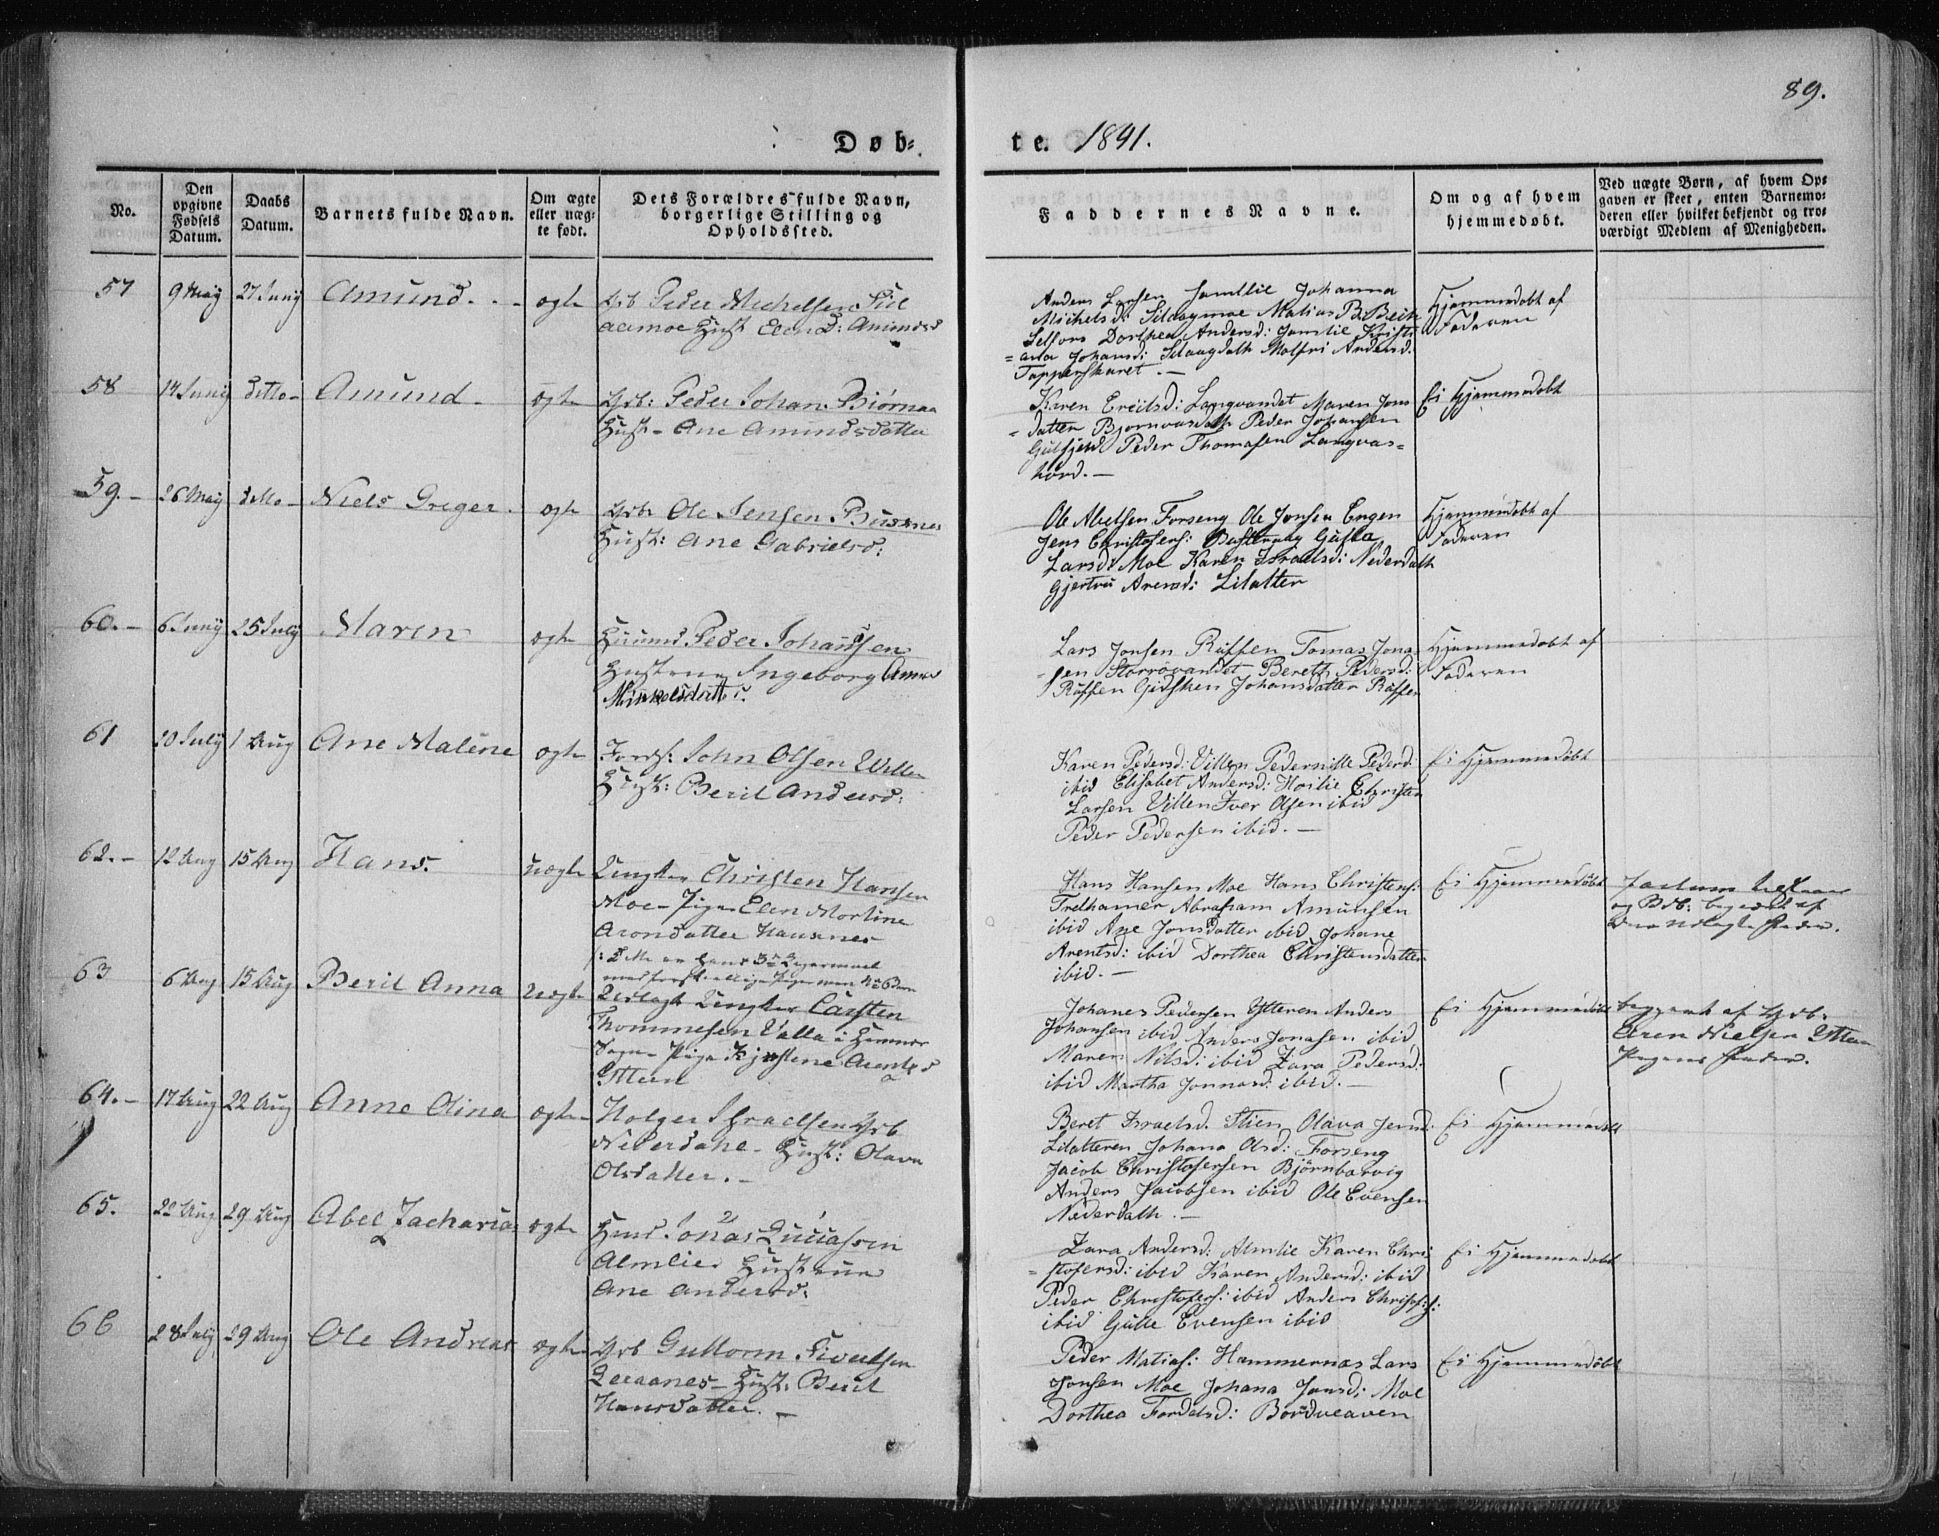 89.
Døb-
te. 1841.
No.
Den opgivne Fødsels Datum.
Daabs Datum.
Barnets fulde Navn.
Om ægte eller uægte født.
Dets Forældres fulde Navn, borgerlige Stilling og Opholdssted.
Faddernes Navne.
Om og af hvem hjemmedøbt.
Ved uægte Børn, af hvem Opgaven er skeet, enten Barnemoderen eller hvilket bekjendt og troværdigt Medlem af Menigheden.
57 9 May 27 Juny Amund. ogte Grb Peder Michelsen
Hust Elen D: Amunds
Anders Larsen Jamtlie Johanna
Michelsd: Sildagmoe Matias P:
Selfors Dorthea Andersd: Jamtlie Kristi
=ana Johansd: Andersd:
Tapperskaret. -
Hjemmedøbt af
Faderen
58 14 Juny Ditto- Amund - ogte Grb: Peder Johan Biørnaa
Hust- Ane Amundsdatter
Karen Langvandet Maren Jons
=datter Peder Johansen
Peder Thomasen Langvas-
=hovd. -
Ei Hjemmedøbt
59.- 26 May Ditto- Niels Greger. ogte Grb Ole Jensen Busnes
Hust: Ane Gabrielsd:
Ole Nielsen Forseng Ole Jonsen Engen
Jens Christofers: Gulla
Larsd: Moe Karen Israelsd: Nederdalh
Gjertru Arensd: Lilatter
Hjemmedøbt af
Faderen
60.- 6 Juny 25 July Maren ogte Huusmd Peder Johansen
Hustrue Ingeborg Anna
Mikkelsdatt:
Lars Jonsen Røffen Tomas Jona
=sen Storrøvandet Bereth Pedersd:
Røffen Gidsken Johansdatter Røffen
Hjemmedøbt af
Faderen
61 20 July 1 Aug Ane Maline ogte John Olsen Villen
Hust: Beril Andersd:
Karen Pedersd: Villen Pedernille Pedersd:
ibid Elisabet Andersd: Hoilie Christen
Larsen Villen Iver Olsen ibid
Peder Pedersen ibid. -
Ei Hjemmedøbt
62.- 12 Aug 15 Aug Hans. uegte Ungkar Christen Hansen
Moe- Pige Elen Martine
Aronsdatter Hausnes
Hans Hansen Moe Hans Christens:
Trelhamer Abraham Amunsen
ibid Ane Jonsdatter ibid Johane
Arentsd: ibid Dorthea Christensdatter
ibid. -
Ei Hjemmedøbt
63 6 Aug 15 Aug Beril Anna uegte Ungkar Carsten
Thommesen Valla i Hemnes
Sogn- Pige Kjerstine Arentsd
Ytteren
Johanes Pedersen Ytteren Anders
Johansen ibid Anders Jonasen ibid
Maren Nilsd: ibid Zara Pedersd:
ibid Martha Jonnasd: ibid. -
Ei Hjemmedøbt
af Grb:
Aren Nielsen Ytteren
Pigens Fader.
64.- 17 Aug 22 Aug Anne Olina ogte- Holger Israelsen Grb
Nederdahl- Hust: Olava
Olsdatter. -
Beret Israelsd. Stien Olava Jensd:
Lilatteren Johana Olsd: Forseng
Jacob Christofersen Bjørnbarvig
Anders Jacobsen ibid Ole Evensen
Nederdalh. -
Ei Hjemmedøbt
65. 22 Aug 29 Aug Abel Zacharias ogte Huusmd Jonas Lucassen
Almlie Hustrue
Ane Andersd:
Zara Andersd: Almlie Karen Chri
=stofersd: ibid Karen Andersd: ibid
Peder Christofers: ibid Anders
ibid Gulle Evensen ibid
Ei Hjemmedøbt
66 28 July 29 Aug Ole Andreas ogte Grb Guttorm Sivertsen
Hust: Beril
Hansdatter. -
Peder Matias: Hammernæs Lars
Jonsen Moe Johana Jonsd: Moe
Dorthea
Ei Hjemmedøbt